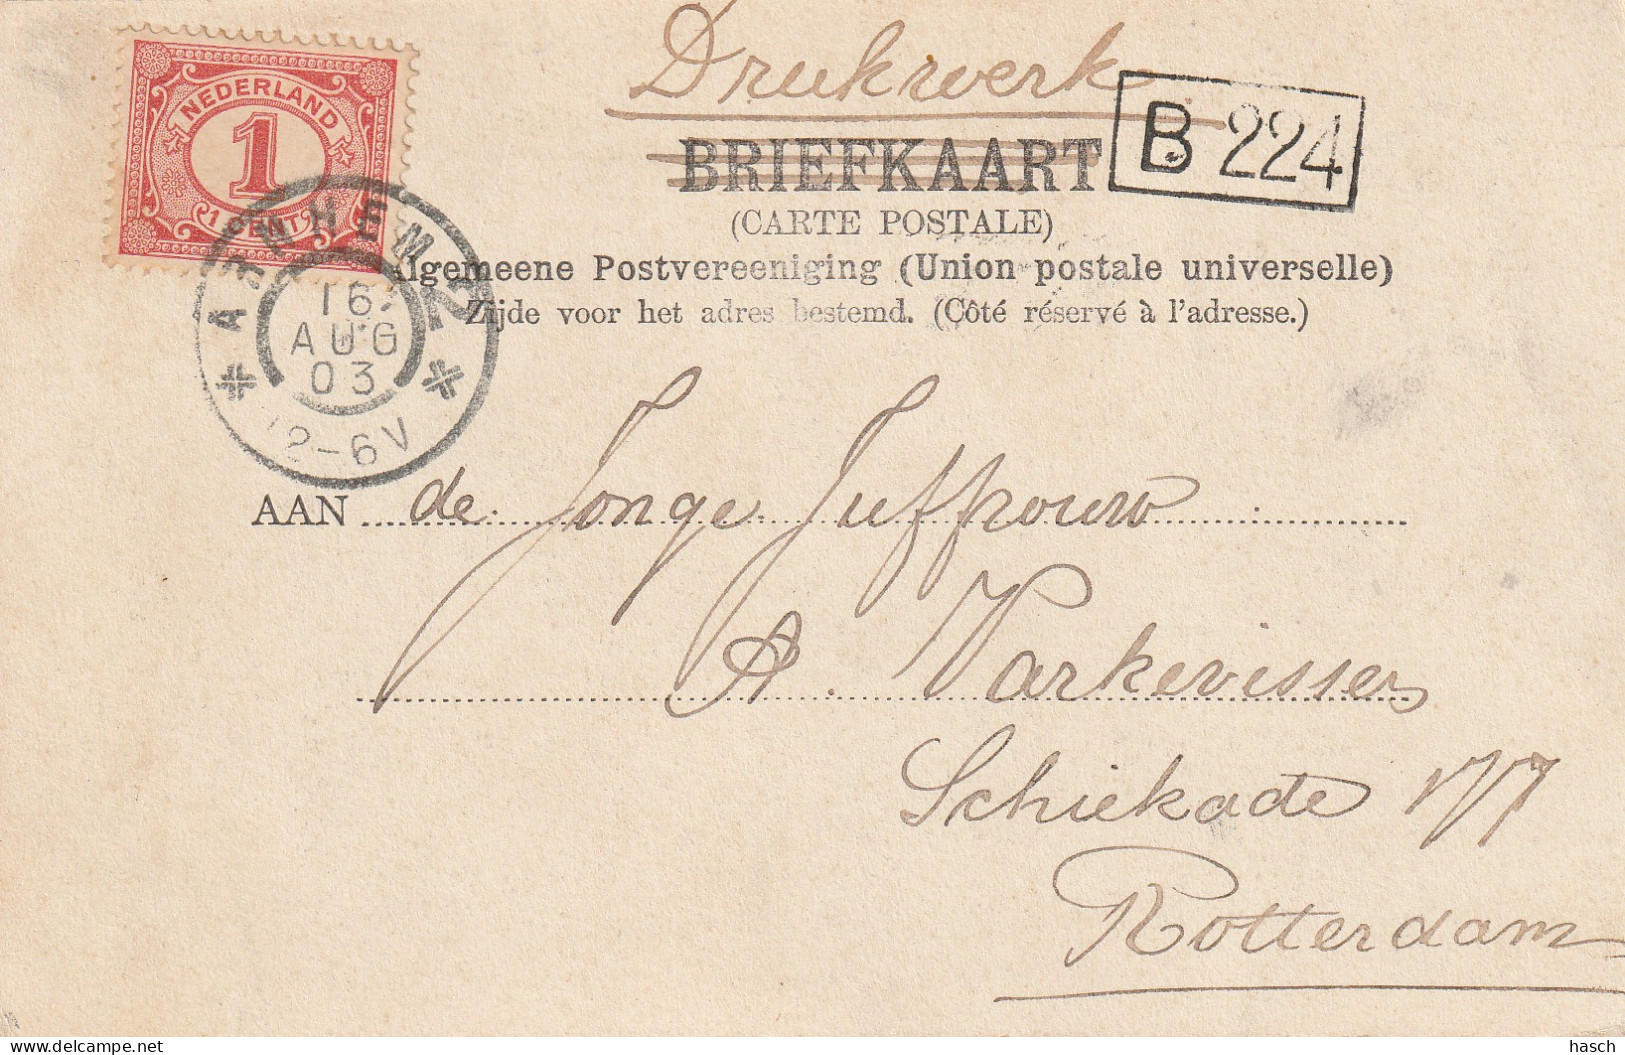 Drukwerk
NEDERLAND
1
1 CENT
B 224
BRIEFKAART
(CARTE POSTALE)
Algemeene Postvereeniging (Union postale universelle)
Zijde voor het adres bestemd. (Côté réservé à l'adresse.)
ARNHEM
16
AUG
03
12-6V
AAN de Jonge Juffrouw
A. Varkevisser
Schiekade 177
Rotterdam
www.delcampe.net
hasch